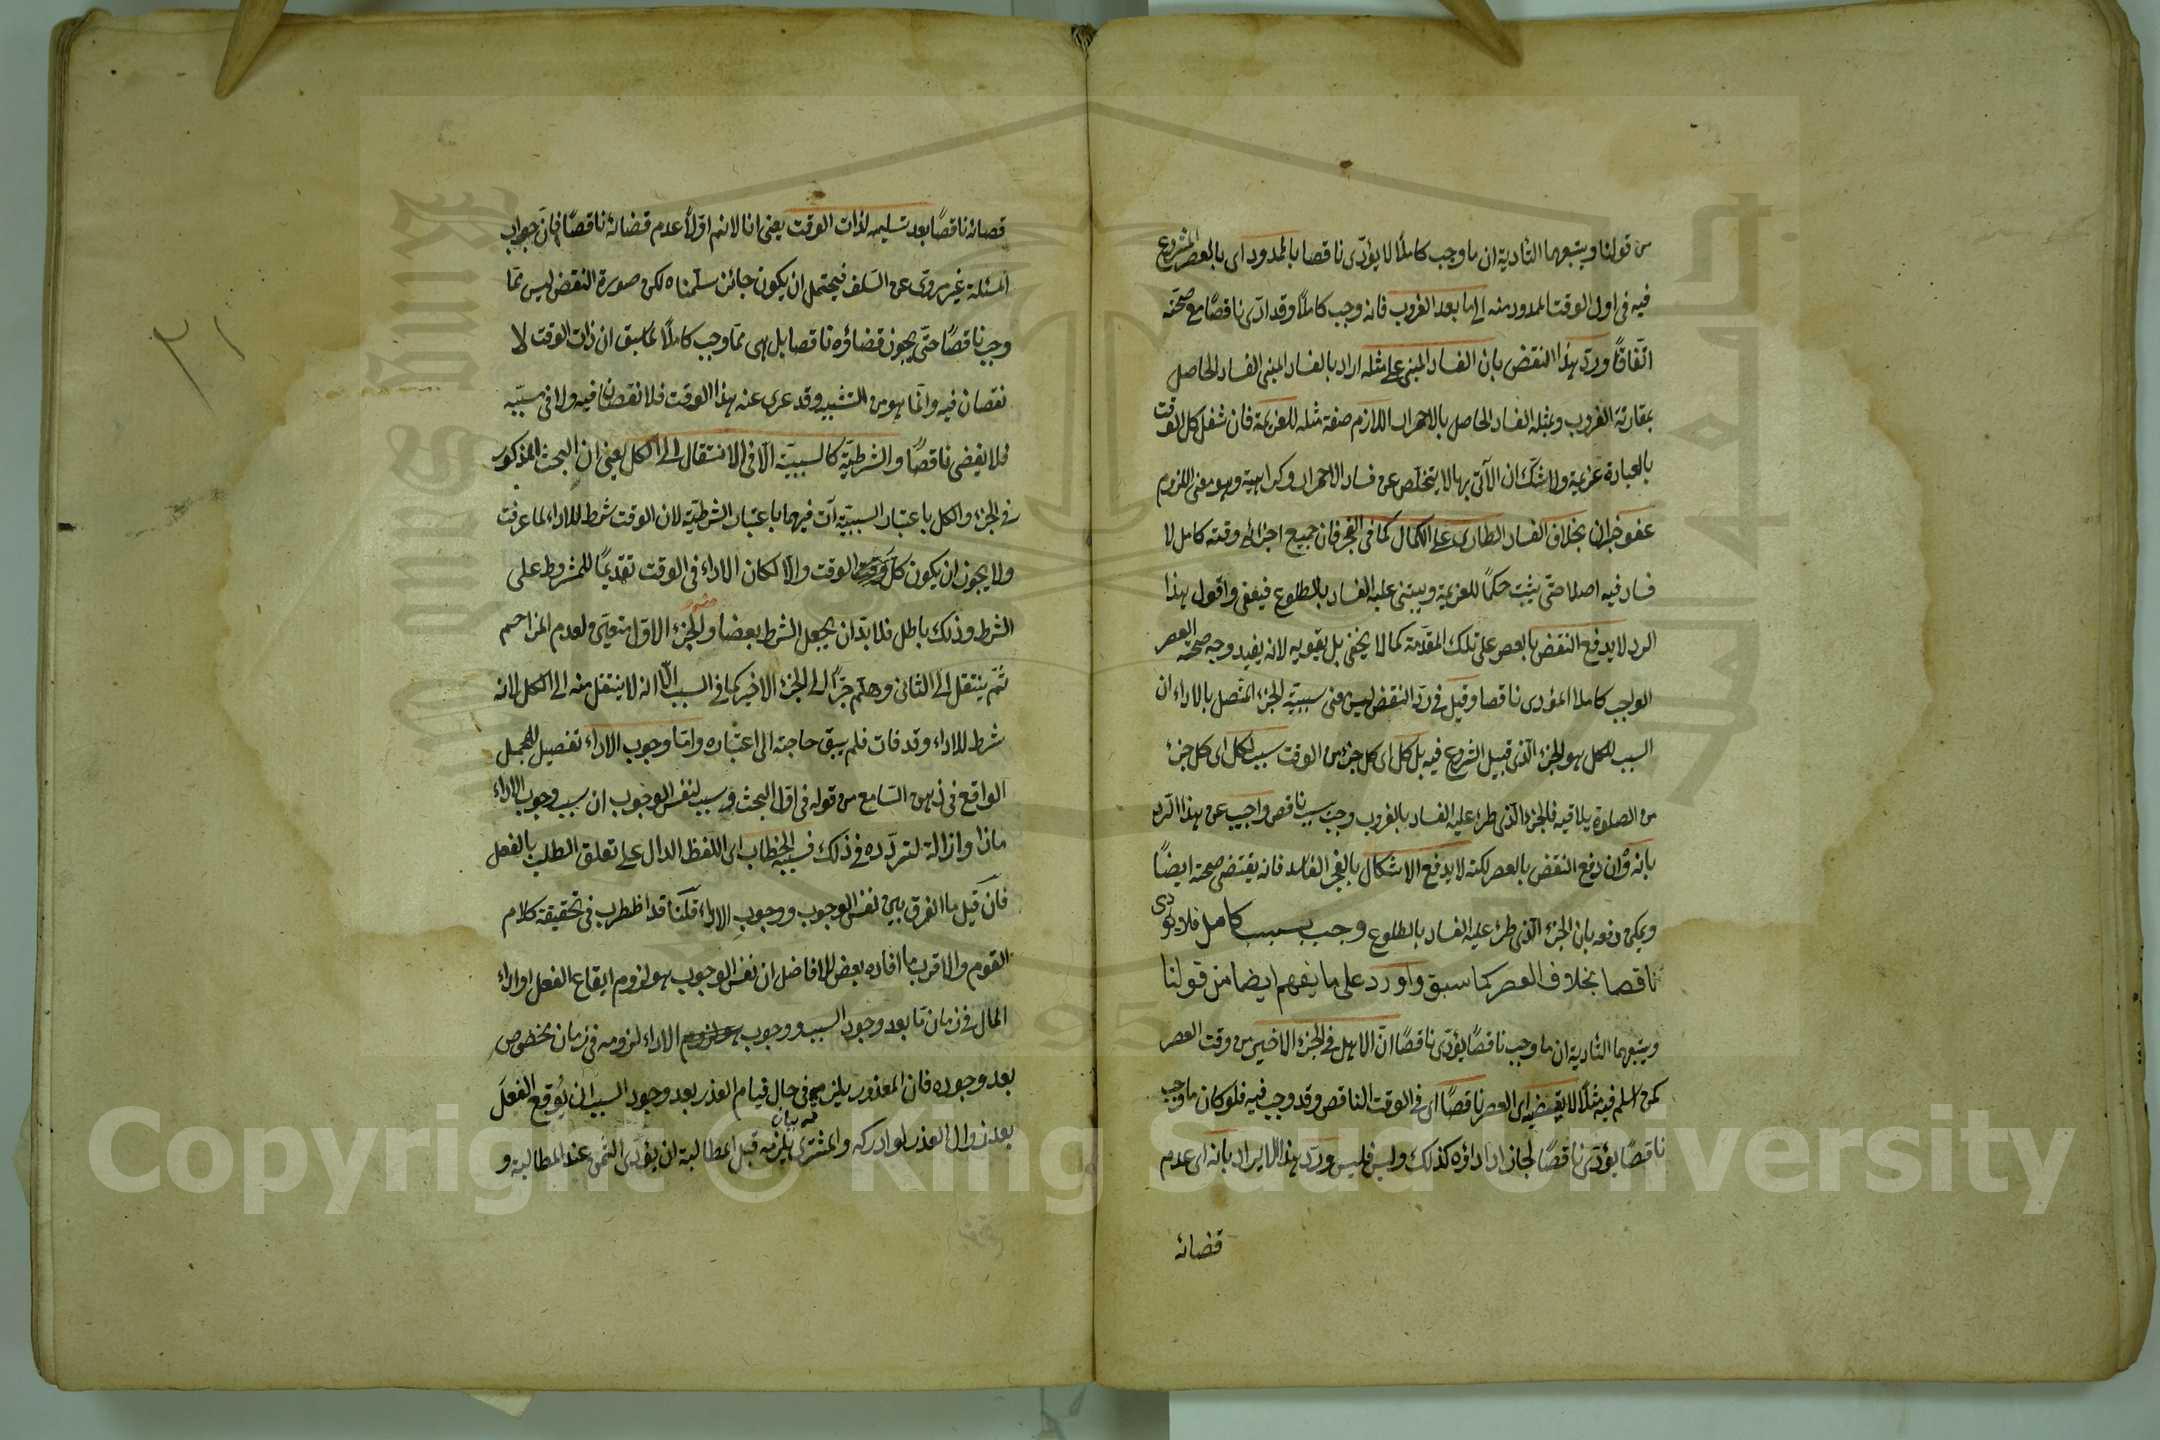 من قولنا ويتبعهما التأدية ان ما وجب كاملا لا يؤدى ناقصا بالممدود اى بالعصر المشروع
فيه فى اول الوقت الممدود منه الى ما بعد الغروب فانه وجب كاملا وقد ادى ناقصا مع صحته
اتفاقا ورد هذا النقض بان الفساد المبنى على مثله اراد بالفساد المبنى الفساد الحاصل
بمقارنة الغروب وبمثله الفساد الحاصل بالاحمرار اللازم صفة مثله للعزيمة فان شغل كل الوقت
بالعبادة عزيمة ولا شك ان الآتى بها لا يتخلص عن فساد الاحمرار وكراهية وهو معنى اللزوم
عفو خبر ان بخلاف الفساد الطارى على الكمال كما فى الفجر فان جميع اجزاء وقته كامل لا
فساد فيه اصلا حتى يثبت حكما للعزيمة ويبتنى عليه الفساد بالطلوع فيعفى واقول هذا
الرد لا يدفع النقض بالعصر على تلك المقدمة كما لا يخفى بل يقويه لانه يفيد وجه صحة العصر
الواجب كاملا المؤدى ناقصا وقيل فى رد النقض ليس معنى سببية الجزء المتصل بالاداء ان
السبب للكل هو الجزء الذى قبيل الشروع فيه بل كل اى كل جزء من الوقت سبب لكل اى كل جزء
من الصلوة يلاقيه فالجزء الذى طرء عليه الفساد بالغروب وجب بسبب ناقص واجيب عن هذا الرد
بانه وان دفع النقض بالعصر لكنه لا يدفع الاشكال بالفجر الفاسد فانه يقتضى صحته ايضا
ويمكن دفعه بان الجزء الذى طرء عليه الفساد بالطلوع وجب بسبب كامل فلا يؤدى
ناقصا بخلاف العصر كما سبق واورد على ما يفهم ايضا من قولنا
ويتبعهما التأدية ان ما وجب ناقصا يؤدى ناقصا ان الاهل فى الجزء الاخير من وقت العصر
كمن اسلم فيه مثلا لا يقضيه اى العصر ناقصا اى فى الوقت الناقص وقد وجب فيه فلو كان ما وجب
ناقصا يؤدى ناقصا لجاز اداؤه كذلك وليس فليس ورد هذا الايراد بانه اى عدم
قضائه
قضائه ناقصا بعد تسليمه لذات الوقت يعنى انا لا نسلم اولا عدم قضائه ناقصا فان جواب
المسئلة غير مروى عن السلف فيحتمل ان يكون جائزا سلمناه لكن صورة النقض ليس مما
وجب ناقصا حتى يجوز قضاؤه ناقصا بل هى مما وجب كاملا لما سبق ان ذات الوقت لا
نقصان فيه وانما هو من التشبيه وقد عرى عنه هذا الوقت فلا نقصان فيه ولا فى مسببه
فلا يقضى ناقصا والشرطية كالسببية الا فى الانتقال الى الكل يعنى ان البحث المذكور
فى الجزء والكل باعتبار السببية آت فيهما باعتبار الشرطية لان الوقت شرط للاداء لما عرفت
ولا يجوز ان يكون كل الوقت والا لكان الاداء فى الوقت تقديما للمشروط على
الشرط وذلك باطل فلا بد ان يجعل الشرط بعضا والجزء الاول متعين لعدم المزاحم
ثم ينتقل الى الثانى وهلم جرا الى الجزء الاخير كما فى السبب الا انه لا ينتقل منه الى الكل لانه
شرط للاداء وقد فات فلم يبق حاجة الى اعتباره واما وجوب الاداء تفصيل للمجمل
الواقع فى ذهن السامع من قوله فى اول البحث وسبب لنفس الوجوب ان سبب وجوب الاداء
ماذا وازالة لتردده فى ذلك فسببه الخطاب اى اللفظ الدال على تعلق الطلب بالفعل
فان قيل ما الفرق بين نفس الوجوب ووجوب الاداء قلنا قد اضطرب فى تحقيقه كلام
القوم والاقرب ما افاده بعض الافاضل ان نفس الوجوب هو لزوم ايقاع الفعل او اداء
المال فى زمان ما بعد وجود السبب ووجوب الاداء لزومه فى زمان مخصوص
بعد وجوده فان المعذور يلزمه فى حال قيام العذر بعد وجود السبب ان يوقع الفعل
بعد زوال العذر لو ادركه والمشترى يلزمه قبل المطالبة ان يؤدى الثمن عند المطالبة و
٢١
Copyright © King Saud University